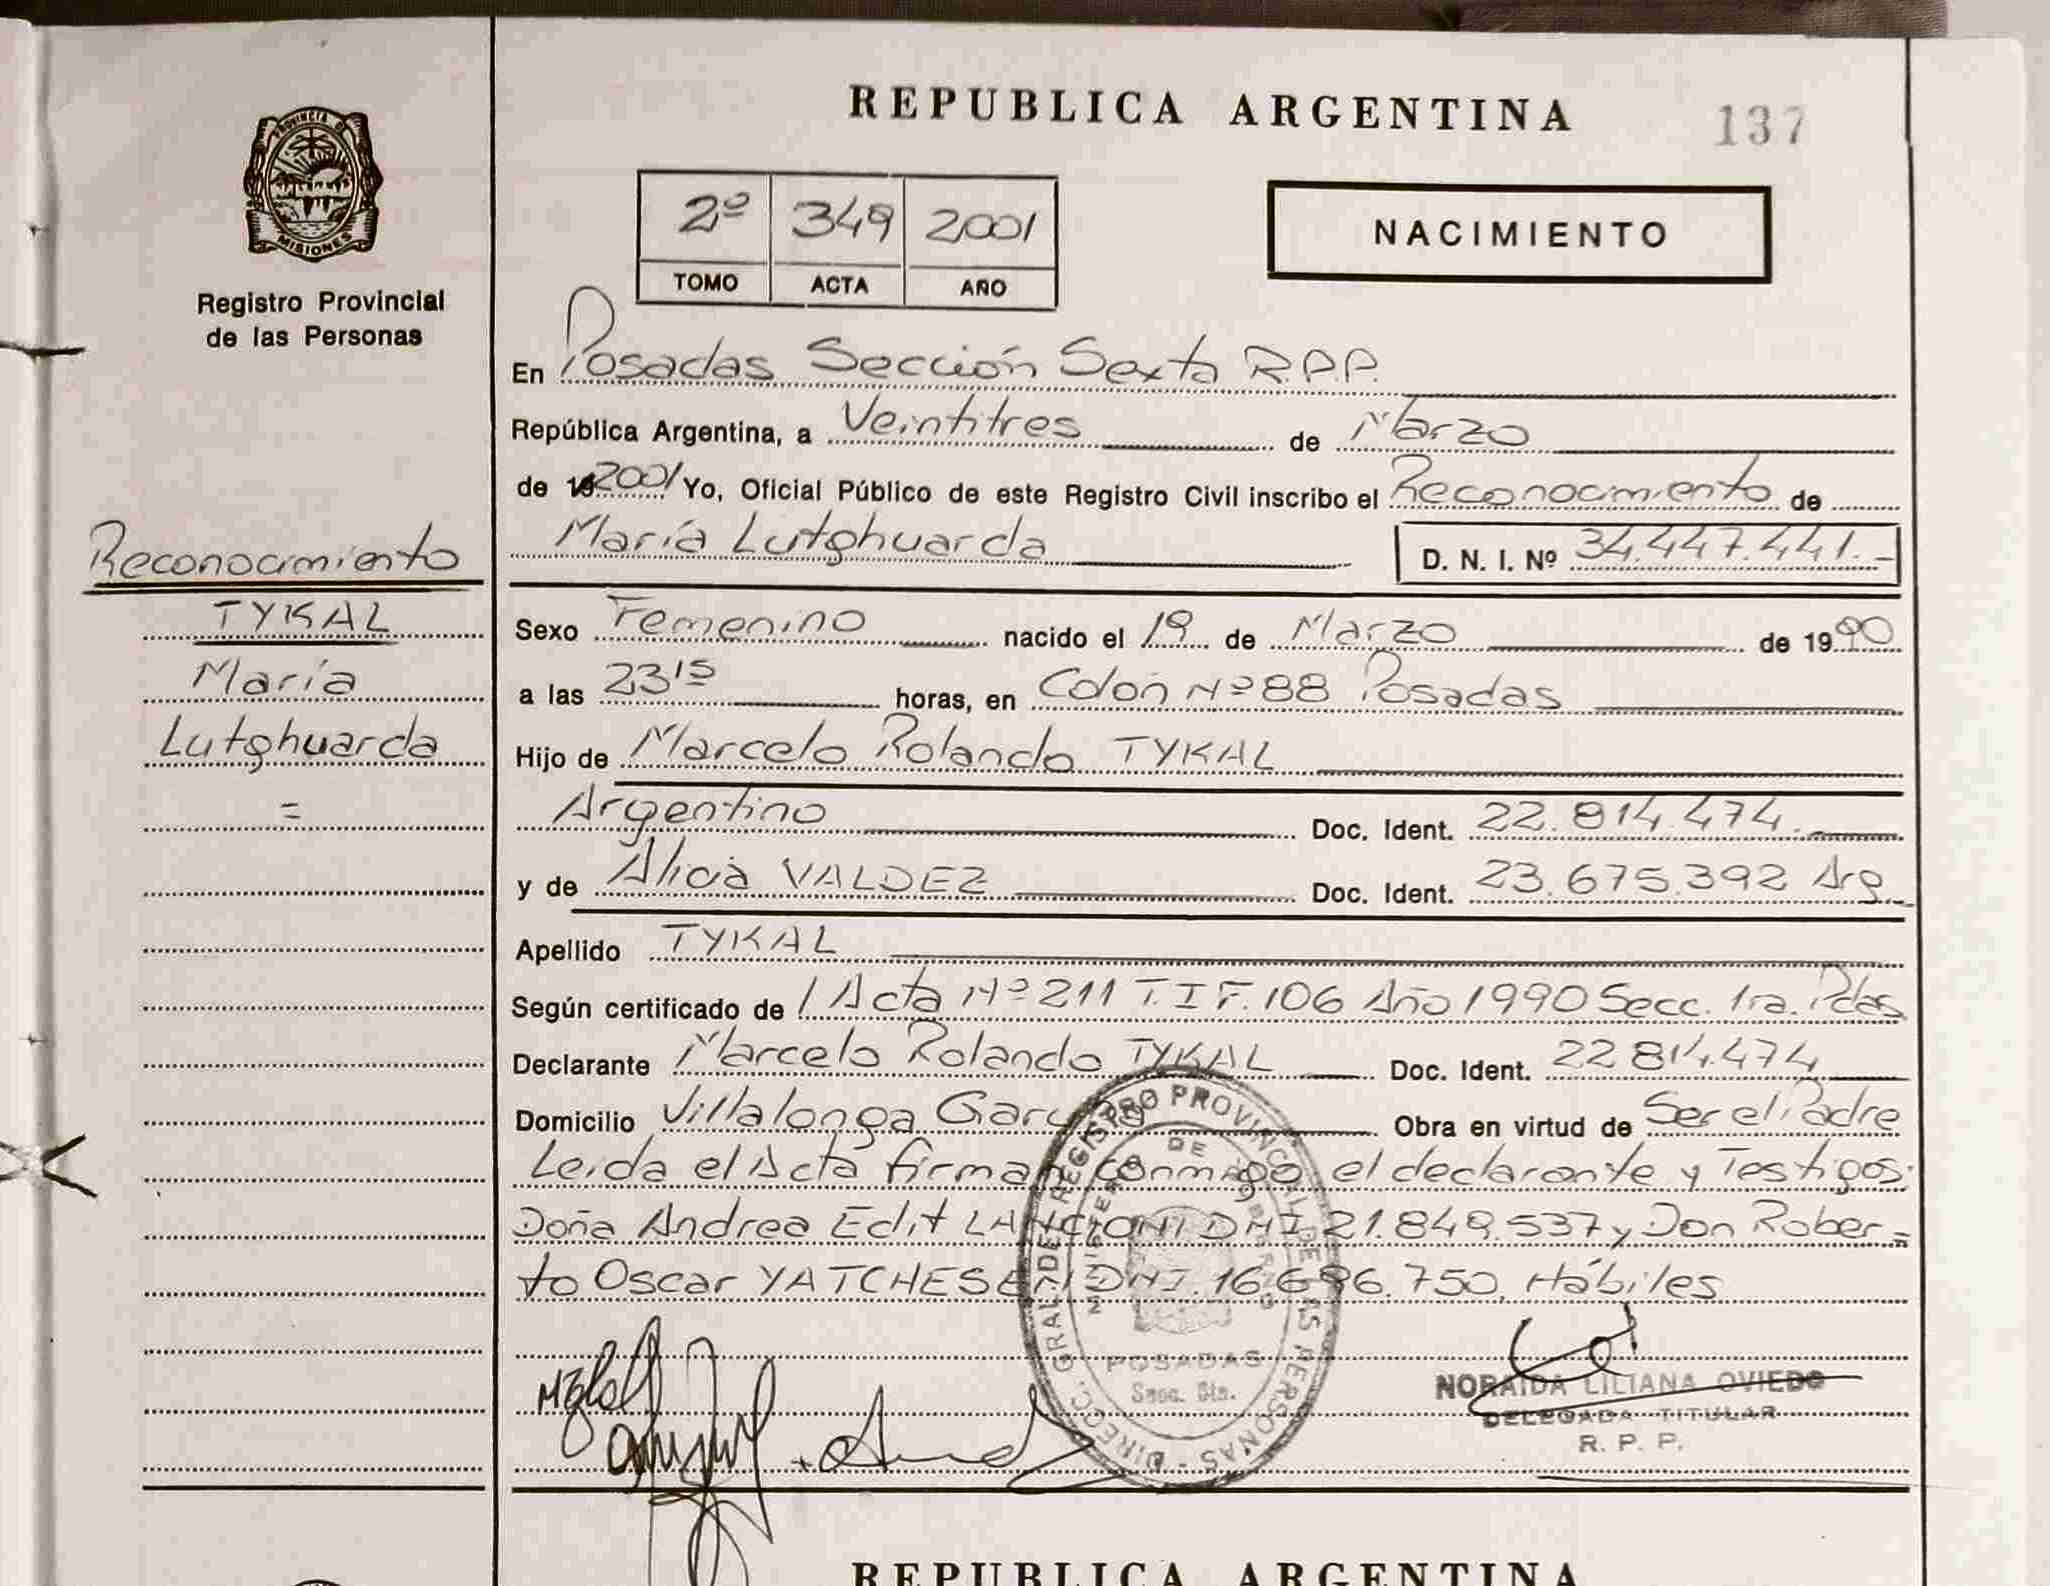 REPUBLICA ARGENTINA
137
PROVINCIA DE
MISIONES
Registro Provincial
de las Personas
2º 349 2001
TOMO ACTA AÑO
NACIMIENTO
En Posadas Sección Sexta R.P.P.
República Argentina, a Veintitres de Marzo
de 19 2001 Yo, Oficial Público de este Registro Civil inscribo el Reconocimiento de
María Lutghuarda D. N. I. Nº 34.447.441.-
Reconocimiento
TYKAL
María
Lutghuarda
=
Sexo Femenino nacido el 19 de Marzo de 1990
a las 23 15 horas, en Colón Nº 88 Posadas
Hijo de Marcelo Rolando TYKAL
Argentino Doc. Ident. 22.814.474.
y de Alicia VALDEZ Doc. Ident. 23.675.392 Arg.
Apellido TYKAL
Según certificado de / Acta Nº 211 T. I F. 106 Año 1990 Secc. 1ra. Pdas
Declarante Marcelo Rolando TYKAL Doc. Ident. 22 814.474
Domicilio Villalonga García Obra en virtud de Ser el Padre
Leida el Acta firman conmigo el declarante y Testigos:
Doña Andrea Edit LANCIONI DNI 21.849.537 y Don Rober=
to Oscar YATCHESEN DNI. 16.696.750. Hábiles
DIRECC. GRAL. DE REGISTRO PROVINCIAL DE LAS PERSONAS
MINISTERIO DE GOBIERNO
POSADAS
Secc. 6ta.
NORAIDA LILIANA OVIEDO
DELEGADA TITULAR
R. P. P.
REPUBLICA ARGENTINA